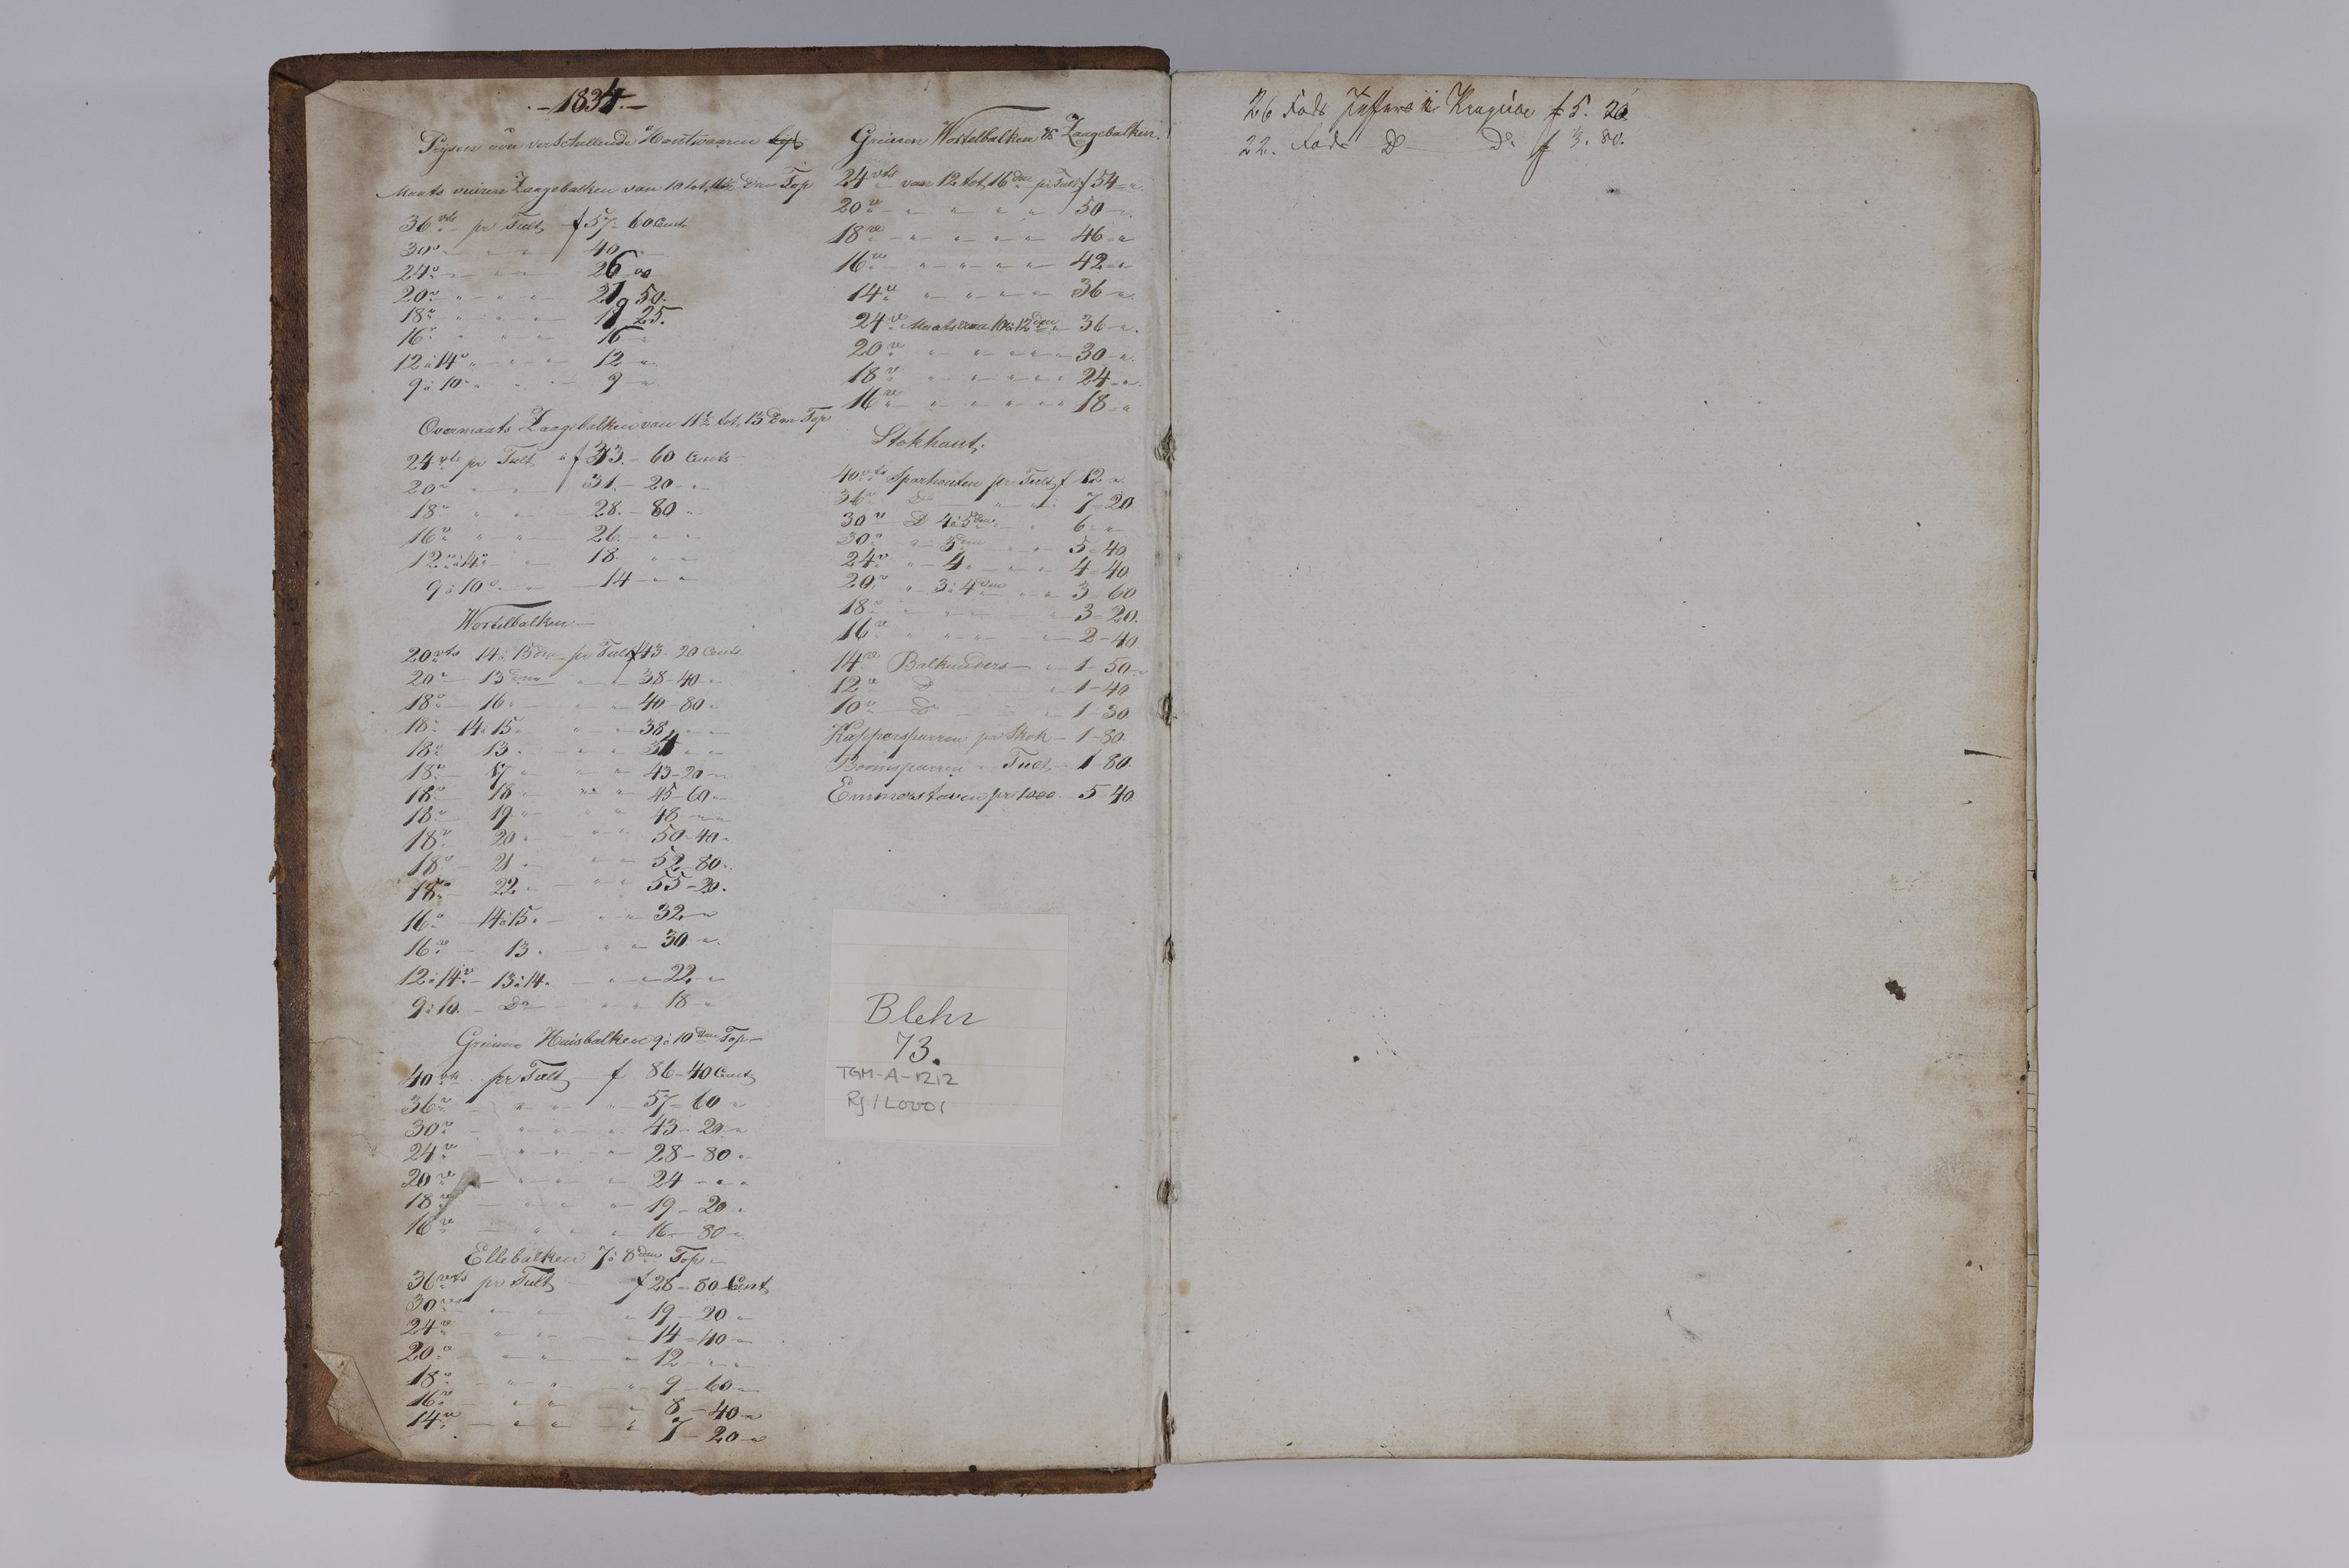 - 1834. -
Prysen van verschillende Houtwaaren
Maats vuiren Zaagebalken van 10 tot 11½ dm Top
36 vts pr Tult f 57 - 60 Cents
30 v " " 40 "
24 v " " 26 00
20 v " " 21 50.
18 v " " 19 25.
16 v " " 16 "
12 à 14 v " " 12 "
9 à 10 " " 9 "
Overmaats Zaagebalken van 11½ tot 13 dm Top
24 vts pr Tult à f 33. - 60 Cents
20 v " " 31. - 20 "
18 v " " 28. - 80 "
16 v " " 26. - " "
12 à 14 v " 18. " "
9 à 10 v " 14 - " "
Wortelbalken -
20 vts 14 à 15 dm pr Tult f 43 - 20 Cents
20 v 13 dm " " 38 - 40 "
18 v 16 " " " 40 - 80 "
18 v 14 à 15 " " " 38 " "
18 v 13 " " " 34 " "
18 v 17 " " " 43 - 20 "
18 v 18 " " " 45 - 60 "
18 v 19 " " " 48 - " "
18 v 20 " " " 50 - 40 "
18 v 21 " " " 52 - 80 "
18 v 22 " " " 55 - 20.
16 v 14 à 15 " " " 32 "
16 v 13 " " " 30 "
12 à 14 v 13 à 14 " " " 22 "
9 à 10. - do " " 18 "
Greinen Huisbalken 9 à 10 dm Top -
40 vts pr Tult f 86 - 40 Cents
36 v " " " 57 - 60 "
30 v " " " 43 - 20 "
24 v " " " 28 - 80 "
20 v " " " 24 - " "
18 v " " " 19 - 20 "
16 v " " " 16 - 80 "
Ellebalken 7 à 8 dm Top -
36 vts pr Tult f 28 - 80 Cent
30 v " " 19 - 20 "
24 v " " " 14 - 40 "
20 v " " " 12 - " "
18 v " " " 9 - 60 "
16 v " " " 8 - 40 "
14 v " " " 7 - 20 "
Greinen Wortelbalken & Zaagebalken.
24 vts van 12 tot 16 dm pr Tult f 54 - "
20 v " " " " 50 - "
18 v " " " " 46 - "
16 v " " " " 42 - "
14 v " " " " 36 - "
24 v Maats van 10 à 12 dm " 36 - "
20 v " " " " 30 - "
18 v " " " " 24 - "
16 v " " " " 18 - "
Stokhout.
40 vts Sparhouten pr Tult f 12 - "
36 v do " " 7 - 20
30 v do 4 à 5 dm " 6 - "
30 v " - 3 dm " " 5 - 40
24 v " - 4 " " " 4 - 40
20 v " 3 à 4 dm " " 3 - 60
18 v " " " 3 - 20.
16 v " " " " 2 - 40
14 v Balkunders - " 1 - 50 "
12 v do " 1 - 40
10 v do " 1 - 30
Kappersparren pr Shok - 1 - 80
Boomsparren " Tult - 1 - 80.
Emmerstaven pr 1000 - 5 - 40
Blehr
73.
TGM-A-1212
Rj 1 L0001
26 Fods Juffers i Kragüe f 5. 20
22. Fods Do Do f 3. 80.